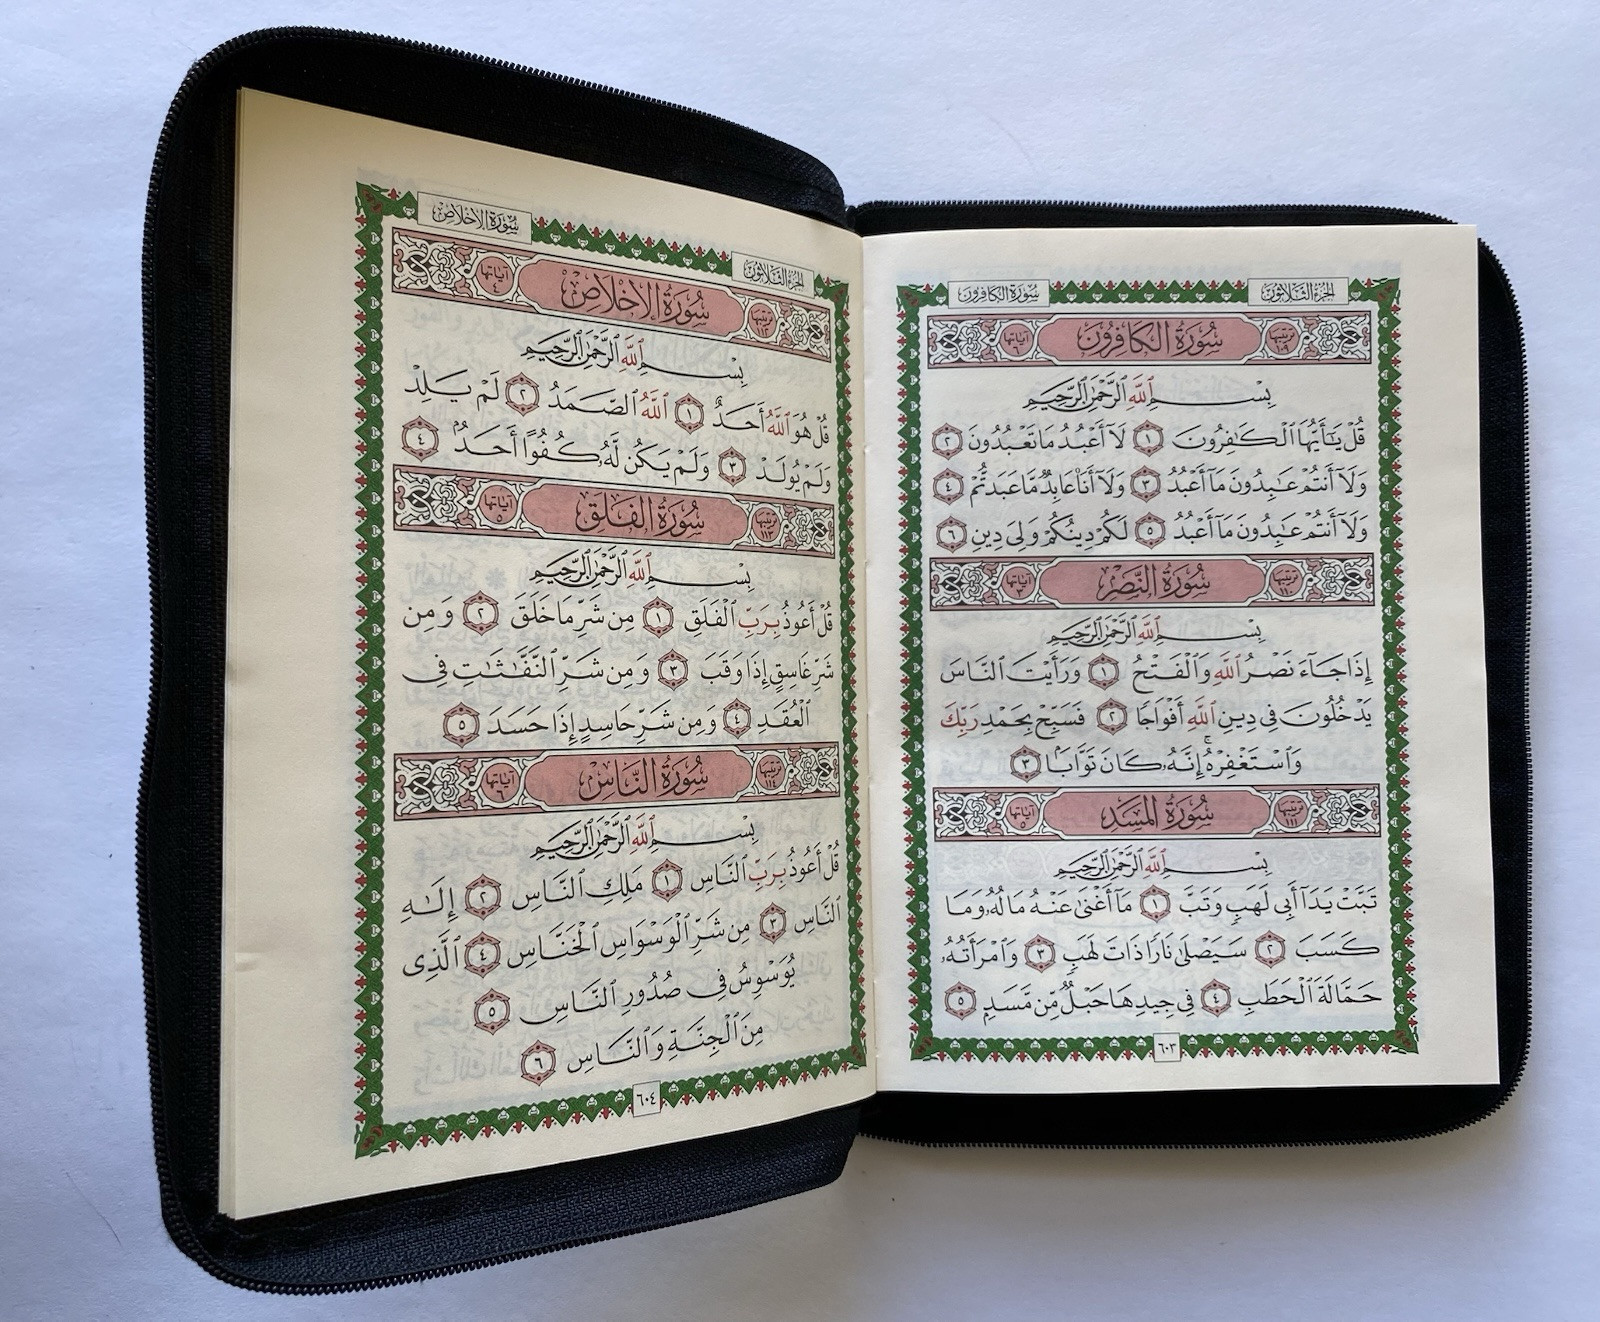 سورة الكافرون
الجزء الثلاثون
ترتيبها ١٠٩ سُورَةُ الكَافِرُونَ آياتها ٦
بِسْمِ ٱللَّهِ ٱلرَّحْمَٰنِ ٱلرَّحِيمِ
قُلْ يَٰٓأَيُّهَا ٱلْكَٰفِرُونَ ١ لَآ أَعْبُدُ مَا تَعْبُدُونَ ٢
وَلَآ أَنتُمْ عَٰبِدُونَ مَآ أَعْبُدُ ٣ وَلَآ أَنَا۠ عَابِدٌ مَّا عَبَدتُّمْ ٤
وَلَآ أَنتُمْ عَٰبِدُونَ مَآ أَعْبُدُ ٥ لَكُمْ دِينُكُمْ وَلِىَ دِينِ ٦
ترتيبها ١١٠ سُورَةُ النَّصْرِ آياتها ٣
بِسْمِ ٱللَّهِ ٱلرَّحْمَٰنِ ٱلرَّحِيمِ
إِذَا جَآءَ نَصْرُ ٱللَّهِ وَٱلْفَتْحُ ١ وَرَأَيْتَ ٱلنَّاسَ
يَدْخُلُونَ فِى دِينِ ٱللَّهِ أَفْوَاجًا ٢ فَسَبِّحْ بِحَمْدِ رَبِّكَ
وَٱسْتَغْفِرْهُ ۚ إِنَّهُۥ كَانَ تَوَّابًۢا ٣
ترتيبها ١١١ سُورَةُ المَسَدِ آياتها ٥
بِسْمِ ٱللَّهِ ٱلرَّحْمَٰنِ ٱلرَّحِيمِ
تَبَّتْ يَدَآ أَبِى لَهَبٍ وَتَبَّ ١ مَآ أَغْنَىٰ عَنْهُ مَالُهُۥ وَمَا
كَسَبَ ٢ سَيَصْلَىٰ نَارًا ذَاتَ لَهَبٍ ٣ وَٱمْرَأَتُهُۥ
حَمَّالَةَ ٱلْحَطَبِ ٤ فِى جِيدِهَا حَبْلٌ مِّن مَّسَدٍۭ ٥
٦٠٣
سورة الإخلاص
الجزء الثلاثون
ترتيبها ١١٢ سُورَةُ الإِخْلَاصِ آياتها ٤
بِسْمِ ٱللَّهِ ٱلرَّحْمَٰنِ ٱلرَّحِيمِ
قُلْ هُوَ ٱللَّهُ أَحَدٌ ١ ٱللَّهُ ٱلصَّمَدُ ٢ لَمْ يَلِدْ
وَلَمْ يُولَدْ ٣ وَلَمْ يَكُن لَّهُۥ كُفُوًا أَحَدٌۢ ٤
ترتيبها ١١٣ سُورَةُ الفَلَقِ آياتها ٥
بِسْمِ ٱللَّهِ ٱلرَّحْمَٰنِ ٱلرَّحِيمِ
قُلْ أَعُوذُ بِرَبِّ ٱلْفَلَقِ ١ مِن شَرِّ مَا خَلَقَ ٢ وَمِن
شَرِّ غَاسِقٍ إِذَا وَقَبَ ٣ وَمِن شَرِّ ٱلنَّفَّٰثَٰتِ فِى
ٱلْعُقَدِ ٤ وَمِن شَرِّ حَاسِدٍ إِذَا حَسَدَ ٥
ترتيبها ١١٤ سُورَةُ النَّاسِ آياتها ٦
بِسْمِ ٱللَّهِ ٱلرَّحْمَٰنِ ٱلرَّحِيمِ
قُلْ أَعُوذُ بِرَبِّ ٱلنَّاسِ ١ مَلِكِ ٱلنَّاسِ ٢ إِلَٰهِ
ٱلنَّاسِ ٣ مِن شَرِّ ٱلْوَسْوَاسِ ٱلْخَنَّاسِ ٤ ٱلَّذِى
يُوَسْوِسُ فِى صُدُورِ ٱلنَّاسِ ٥
مِنَ ٱلْجِنَّةِ وَٱلنَّاسِ ٦
٦٠٤